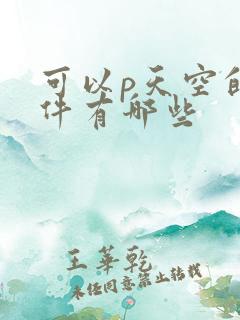 可以p天空的
件有哪些
王华乾
未经同意禁止转载